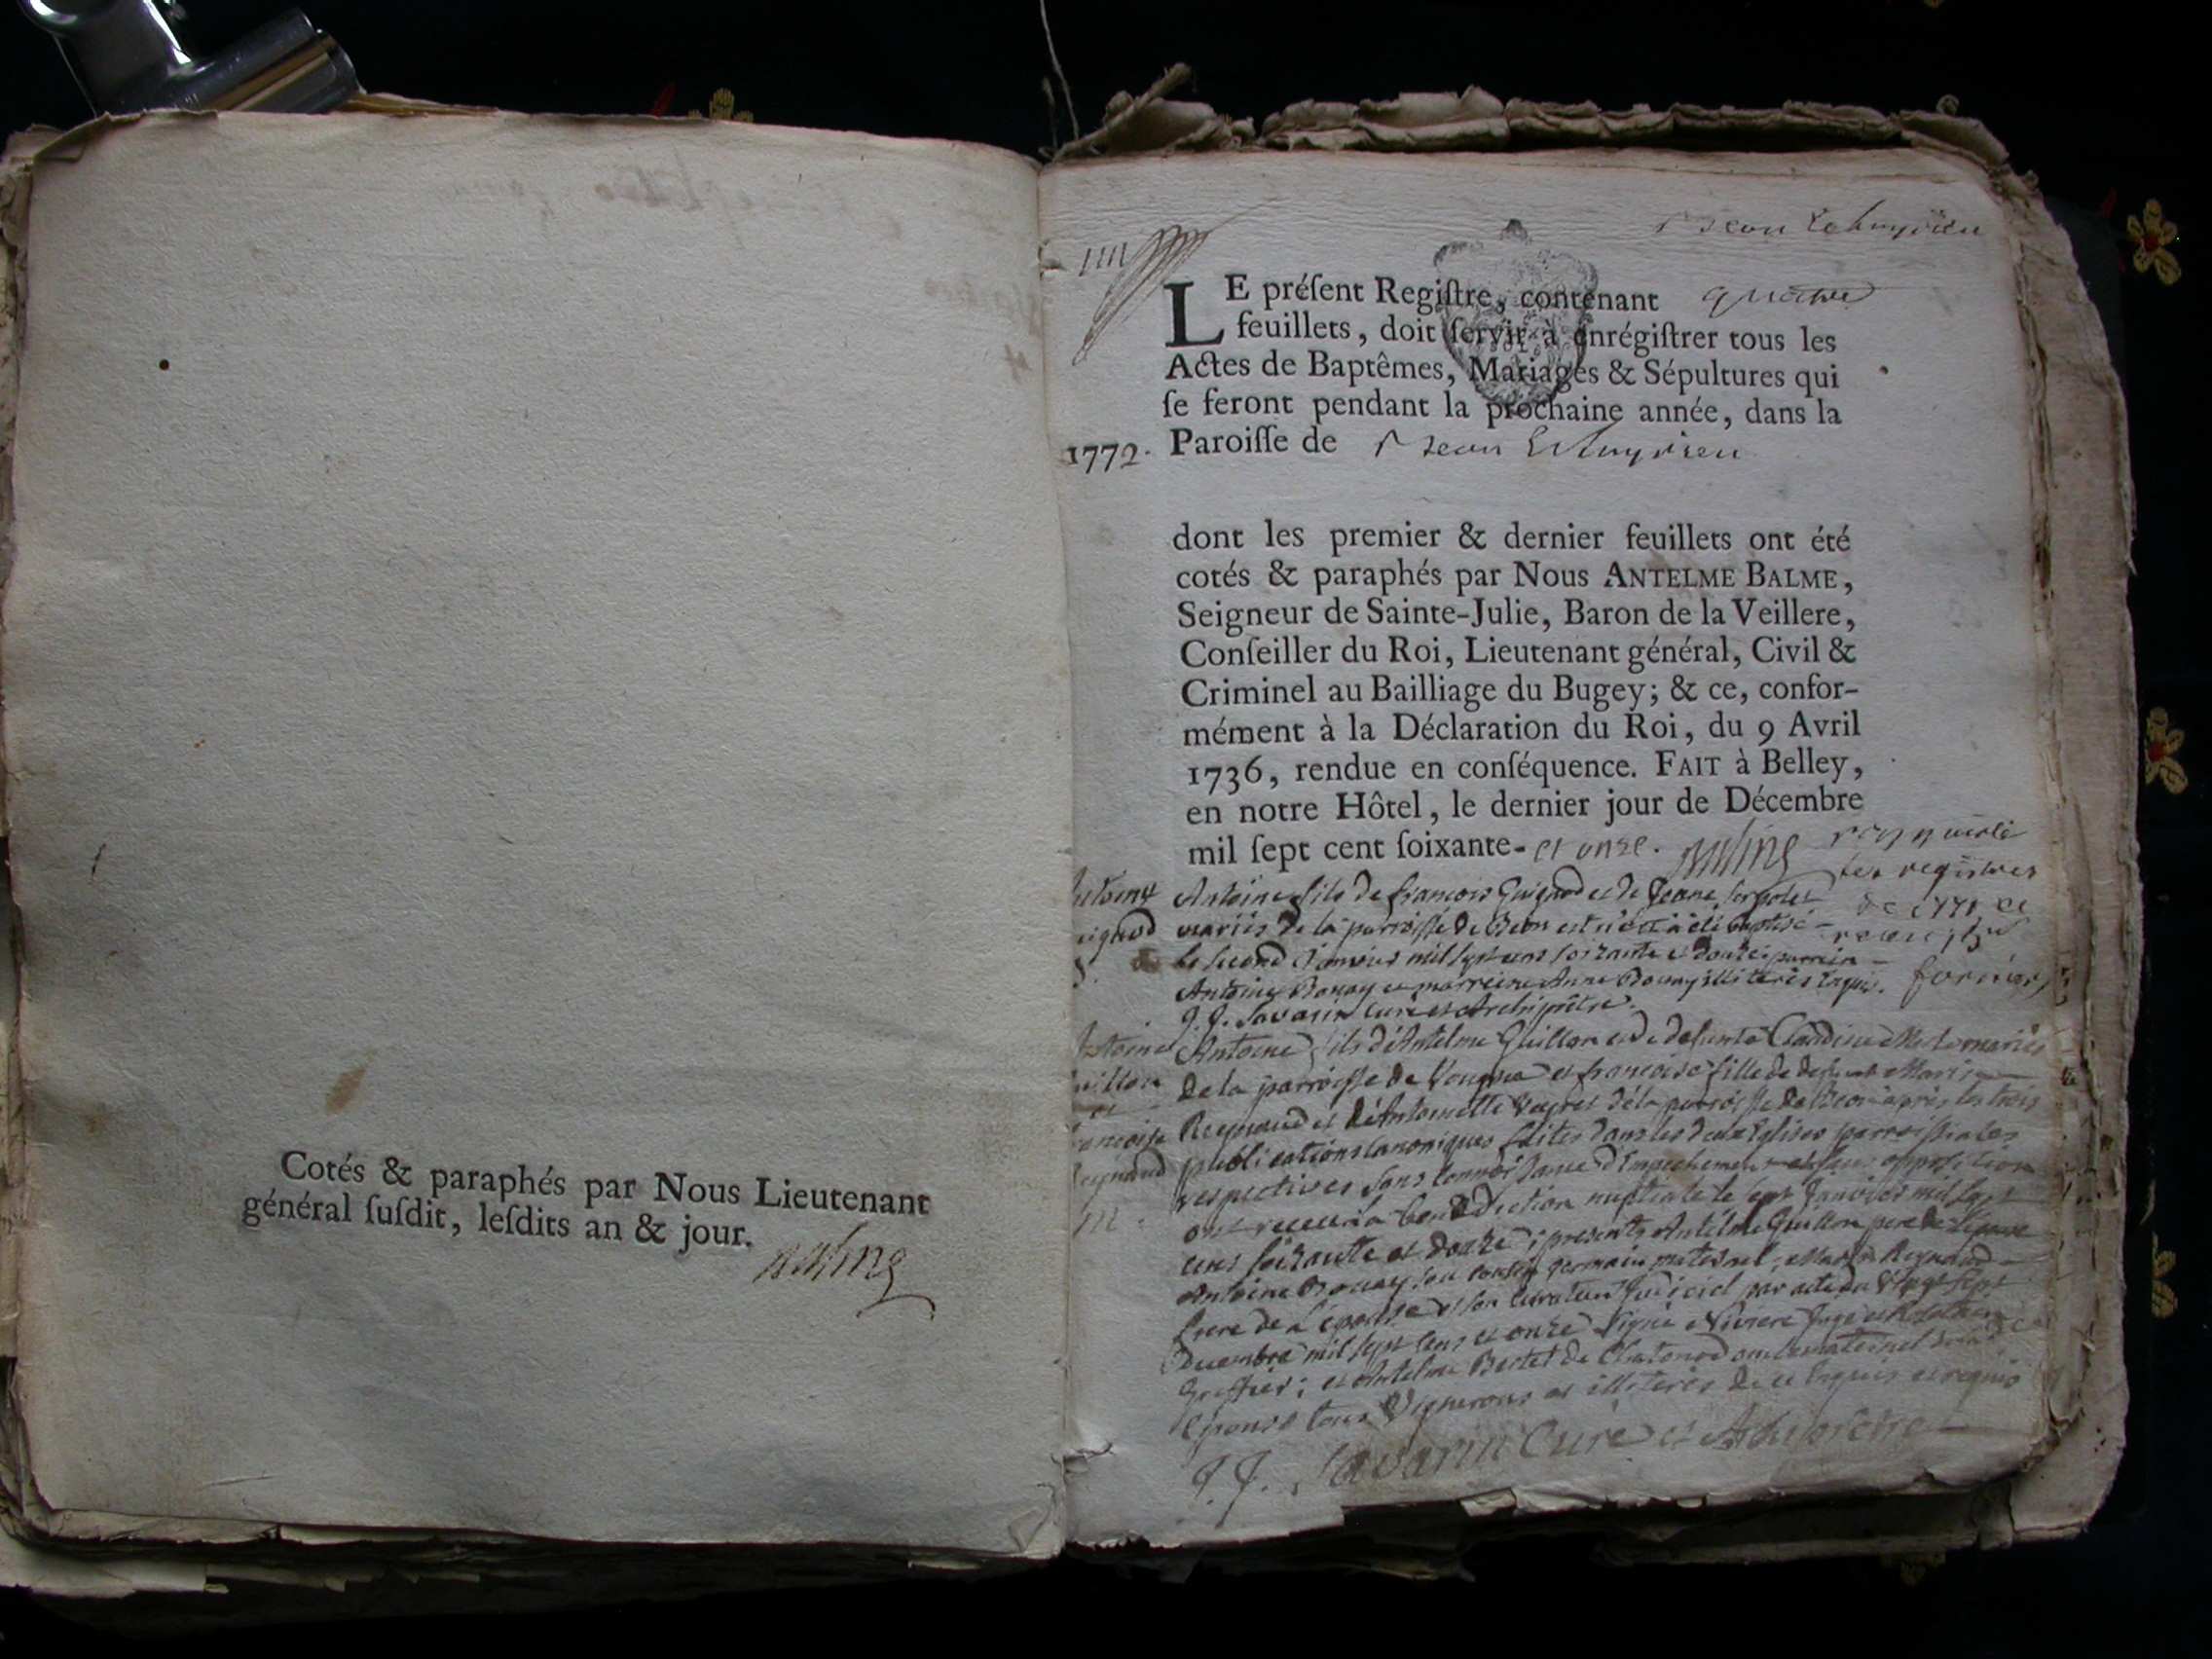 Cotés & paraphés par Nous Lieutenant
général ſuſdit, leſdits an & jour.
LE préſent Regiſtre, contenant quatre
feuillets, doit ſervir à enrégiſtrer tous les
Actes de Baptêmes, Mariages & Sépultures qui
ſe feront pendant la prochaine année, dans la
1772. Paroiſſe de
dont les premier & dernier feuillets ont été
cotés & paraphés par Nous ANTELME BALME,
Seigneur de Sainte-Julie, Baron de la Veillere,
Conſeiller du Roi, Lieutenant général, Civil &
Criminel au Bailliage du Bugey; & ce, confor-
mément à la Déclaration du Roi, du 9 Avril
1736, rendue en conſéquence. FAIT à Belley,
en notre Hôtel, le dernier jour de Décembre
mil ſept cent ſoixante- et onze.
Antoine fils de francois Guignod et de Jeanne
mariés de la parroisse de Beon est né et a été baptisé
le second Janvier mil sept cens soixante et douze; parrein
Antoine Bonay et marreine Anne Bonay illiterés Enquis.
J. J. Savarin curé et Archiprêtre.
Antoine fils d'Antelme Guillon et de defunte Claudine mariés
de la parroisse de Vongne et francoise fille de defunt Marin
Reynaud et d'Antoinette de la parroisse de Beon après les trois
publications canoniques faites dans les deux Eglises parroissiales
respectives sans connoissance d'Empechement et sans opposition
ont receu la benediction nuptiale le sept Janvier mil sept
cens soixante et douze; presents Antelme Guillon pere de l'époux
Antoine Bonay son cousin germain maternel, Marin Reynaud
frere de l'épouse et son curateur Judiciel par acte du vingt sept
Decembre mil sept cens et onze signé Juge et
Greffier; et Antelme Bertet de Chatonod oncle maternel
épouse tous Vignerons et illiterés de ce Enquis et requis
J. J. Savarin Curé et Archiprêtre